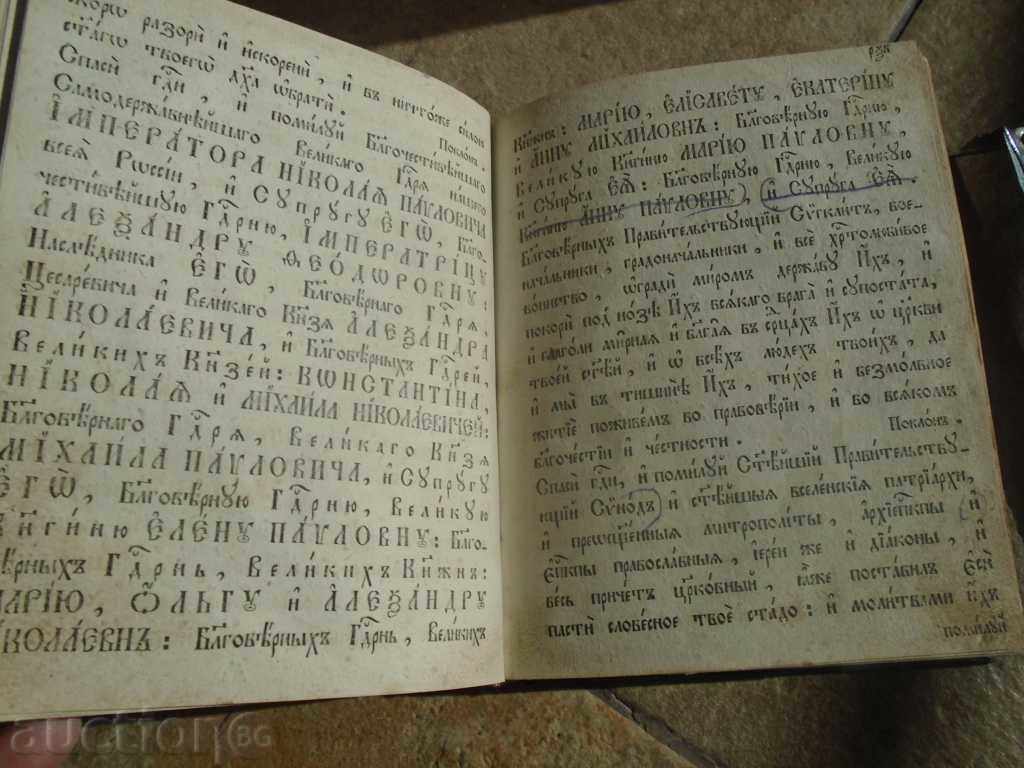 скорѡ разорѝ и҆ и҆скоренѝ, и҆ въ ничто́же силою
ст҃а́гѡ твоегѡ̀ дх҃а ѡ҆братѝ.
Поклонъ.
Спасѝ гдⷭ҇и, и҆ помилꙋй Благочести́вѣйшаго
Самодержа́внѣйшаго Вели́каго Гдⷭ҇рѧ на́шего
І҆МПЕРАТОРА НІКОЛАѦ ПАѴЛОВИЧА
всеѧ̀ Рѡссі́и, и҆ СꙊПРꙊГꙊ Е҆ГѠ̀, Бл҃го-
чести́вѣйшꙋю Гдⷭ҇рню, І҆МПЕРАТРІЦꙊ
А҆ЛЕѮАНДРꙊ ѲЕО҆ДѠРОВНꙊ:
Наслѣдника Е҆ГѠ̀, Бл҃говѣрнаго Гдⷭ҇рѧ,
Цесаре́вича и҆ Вели́каго Кнѧ́зѧ А҆ЛЕѮАНДРА
НІКОЛАЕВИЧА, и҆ Бл҃говѣрныхъ Гдⷭ҇рей,
Вели́кихъ Кнѧзе́й: КѠНСТАНТІНА,
НІКОЛАѦ и҆ МІХАИЛА НІКОЛАЕВИЧЕЙ:
Бл҃говѣрнаго Гдⷭ҇рѧ, Вели́каго Кнѧ́зѧ
МІХАИЛА ПАѴЛОВИЧА, и҆ СꙋПРꙋГꙋ
Е҆ГѠ̀, Бл҃говѣрнꙋю Гдⷭ҇рню, Вели́кꙋю
Кнѧги́ню Е҆ЛЕНꙊ ПАѴЛОВНꙊ: Бл҃го-
вѣрныхъ Гдⷭ҇рнь, Вели́кихъ Кнѧжнъ:
МАРІЮ, Ѻ҆ЛЬГꙊ и҆ А҆ЛЕѮАНДРꙊ
НІКОЛАЕВНЪ: Бл҃говѣрныхъ Гдⷭ҇рнь, Вели́кихъ
Кнѧжнъ: МАРІЮ, Е҆ЛІСАВЕТꙊ, Е҆КАТЕРІНꙊ
и҆ А҆ННꙊ МІХАИЛОВНЪ: Бл҃говѣрнꙋю Гдⷭ҇рню,
Вели́кꙋю Кнѧги́ню МАРІЮ ПАѴЛОВНꙊ,
и҆ Сꙋпрꙋга Е҆Ѧ̀: Бл҃говѣрнꙋю Гдⷭ҇рню, Вели́кꙋю
Кнѧги́ню А҆ННꙊ ПАѴЛОВНꙊ, и҆ Сꙋпрꙋга Е҆Ѧ̀.
Бл҃говѣрныхъ Прави́тельствꙋющїй Сѷгкли́тъ, вое-
нача́льники, градонача́льники, и҆ всѐ хрⷭ҇толюби́вое
во́инство, ѡ҆градѝ ми́ромъ держа́вꙋ И҆́хъ, и҆
покорѝ под̾ но́зѣ И҆̀хъ всѧ́каго врага̀ и҆ сꙋпоста́та,
и҆ глаго́ли ми́рнаѧ и҆ бл҃га́ѧ въ срⷣца́хъ И҆́хъ ѡ҆ цр҃кви
твое́й ст҃ѣ́й, и҆ ѡ҆ всѣ́хъ лю́дехъ твои́хъ, да
и҆ мы̀ въ тишинѣ̀ И҆́хъ, ти́хое и҆ безмо́лвное
житїѐ поживе́мъ во правовѣ́рїи, и҆ во всѧ́комъ
благоче́стїи и҆ че́стности.
Поклонъ.
Спасѝ гдⷭ҇и, и҆ поми́лꙋй Ст҃ѣ́йшїй Прави́тельствꙋ-
ющїй Сѷно́дъ, и҆ ст҃ѣ́йшыѧ вселе́нскїѧ патрїа́рхи,
и҆ преѡсщ҃е́нныѧ митрополі́ты, а҆рхїепⷭ҇копы и҆
є҆пⷭ҇копы правосла́вныѧ, і҆ере́и же и҆ дїа́коны, и҆
ве́сь при́четъ цр҃ко́вный, ꙗ҆̀же поста́вилъ є҆сѝ
пастѝ слове́сное твоѐ ста́до: и҆ моли́твами и҆́хъ
поми́лꙋй
auction BG